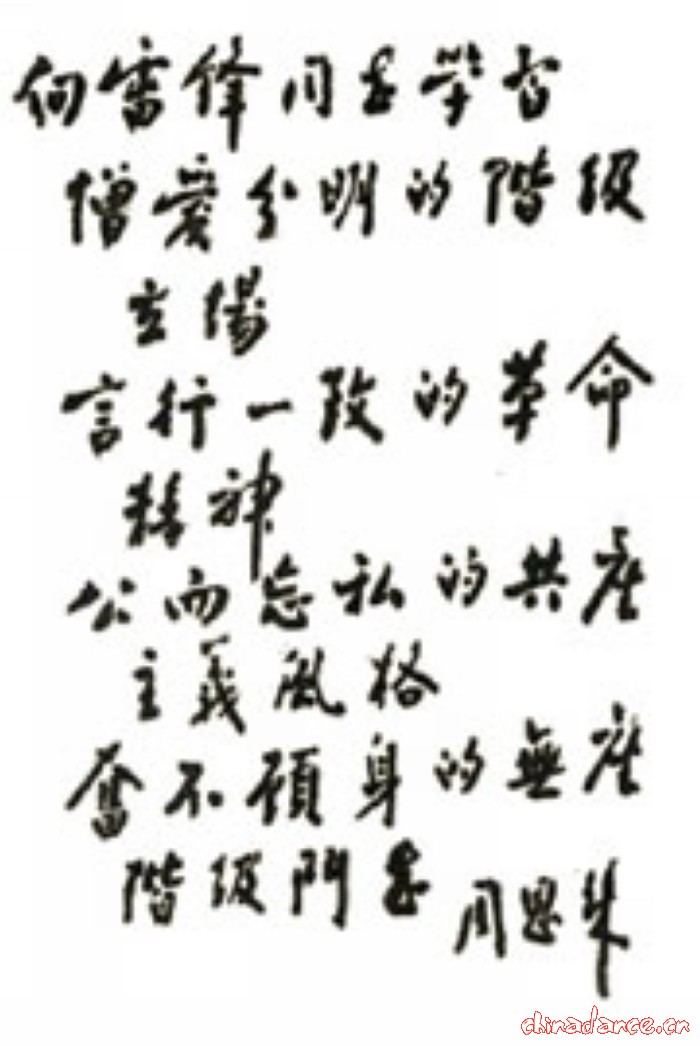 向雷锋同志学習
憎爱分明的階级
立場
言行一致的革命
精神
公而忘私的共産
主義風格
奮不顧身的無産
階级鬥志
周恩来
chinadance.cn